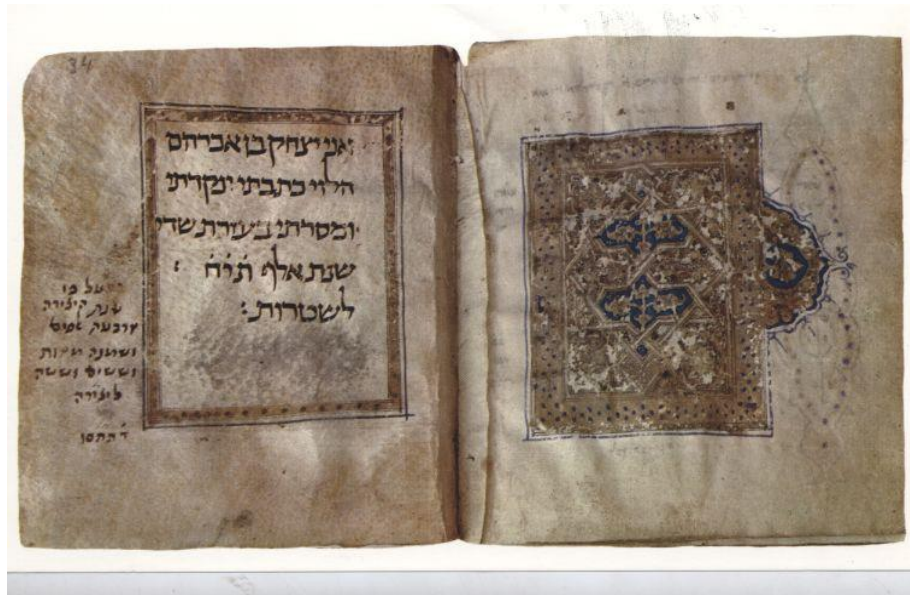 34
אני יצחק בן אברהם
הלוי כתבתי ונקדתי
ומסרתי בעזרת שדי
שנת אלף ת׳י׳ח׳
לשטרות:
על פי
שנת
ארבעה אלפים
ושמנה מאות
וששים וששה
ליצירה
ד׳תתסו